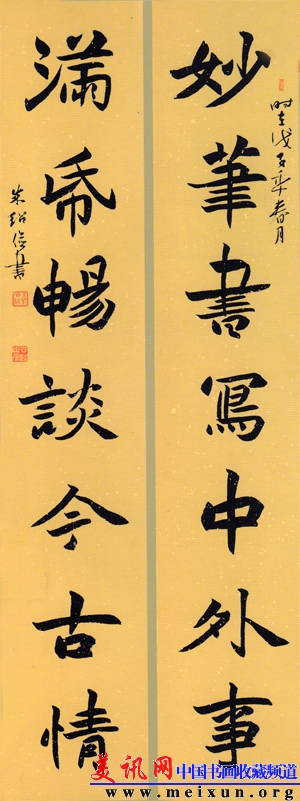 时在戊子年春月
妙筆書寫中外事
滿帋暢談今古情
書
美讯网 中国书画收藏频道
www.meixun.org